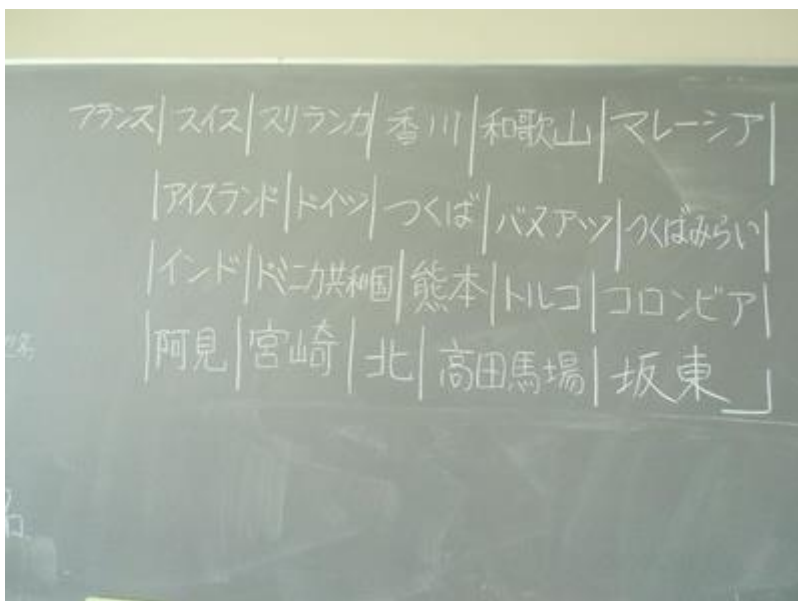 フランス|スイス|スリランカ|香川|和歌山|マレーシア|
|アイスランド|ドイツ|つくば|バヌアツ|つくばみらい|
|インド|ドミニカ共和国|熊本|トルコ|コロンビア|
|阿見|宮崎|北|高田馬場|坂東」
名